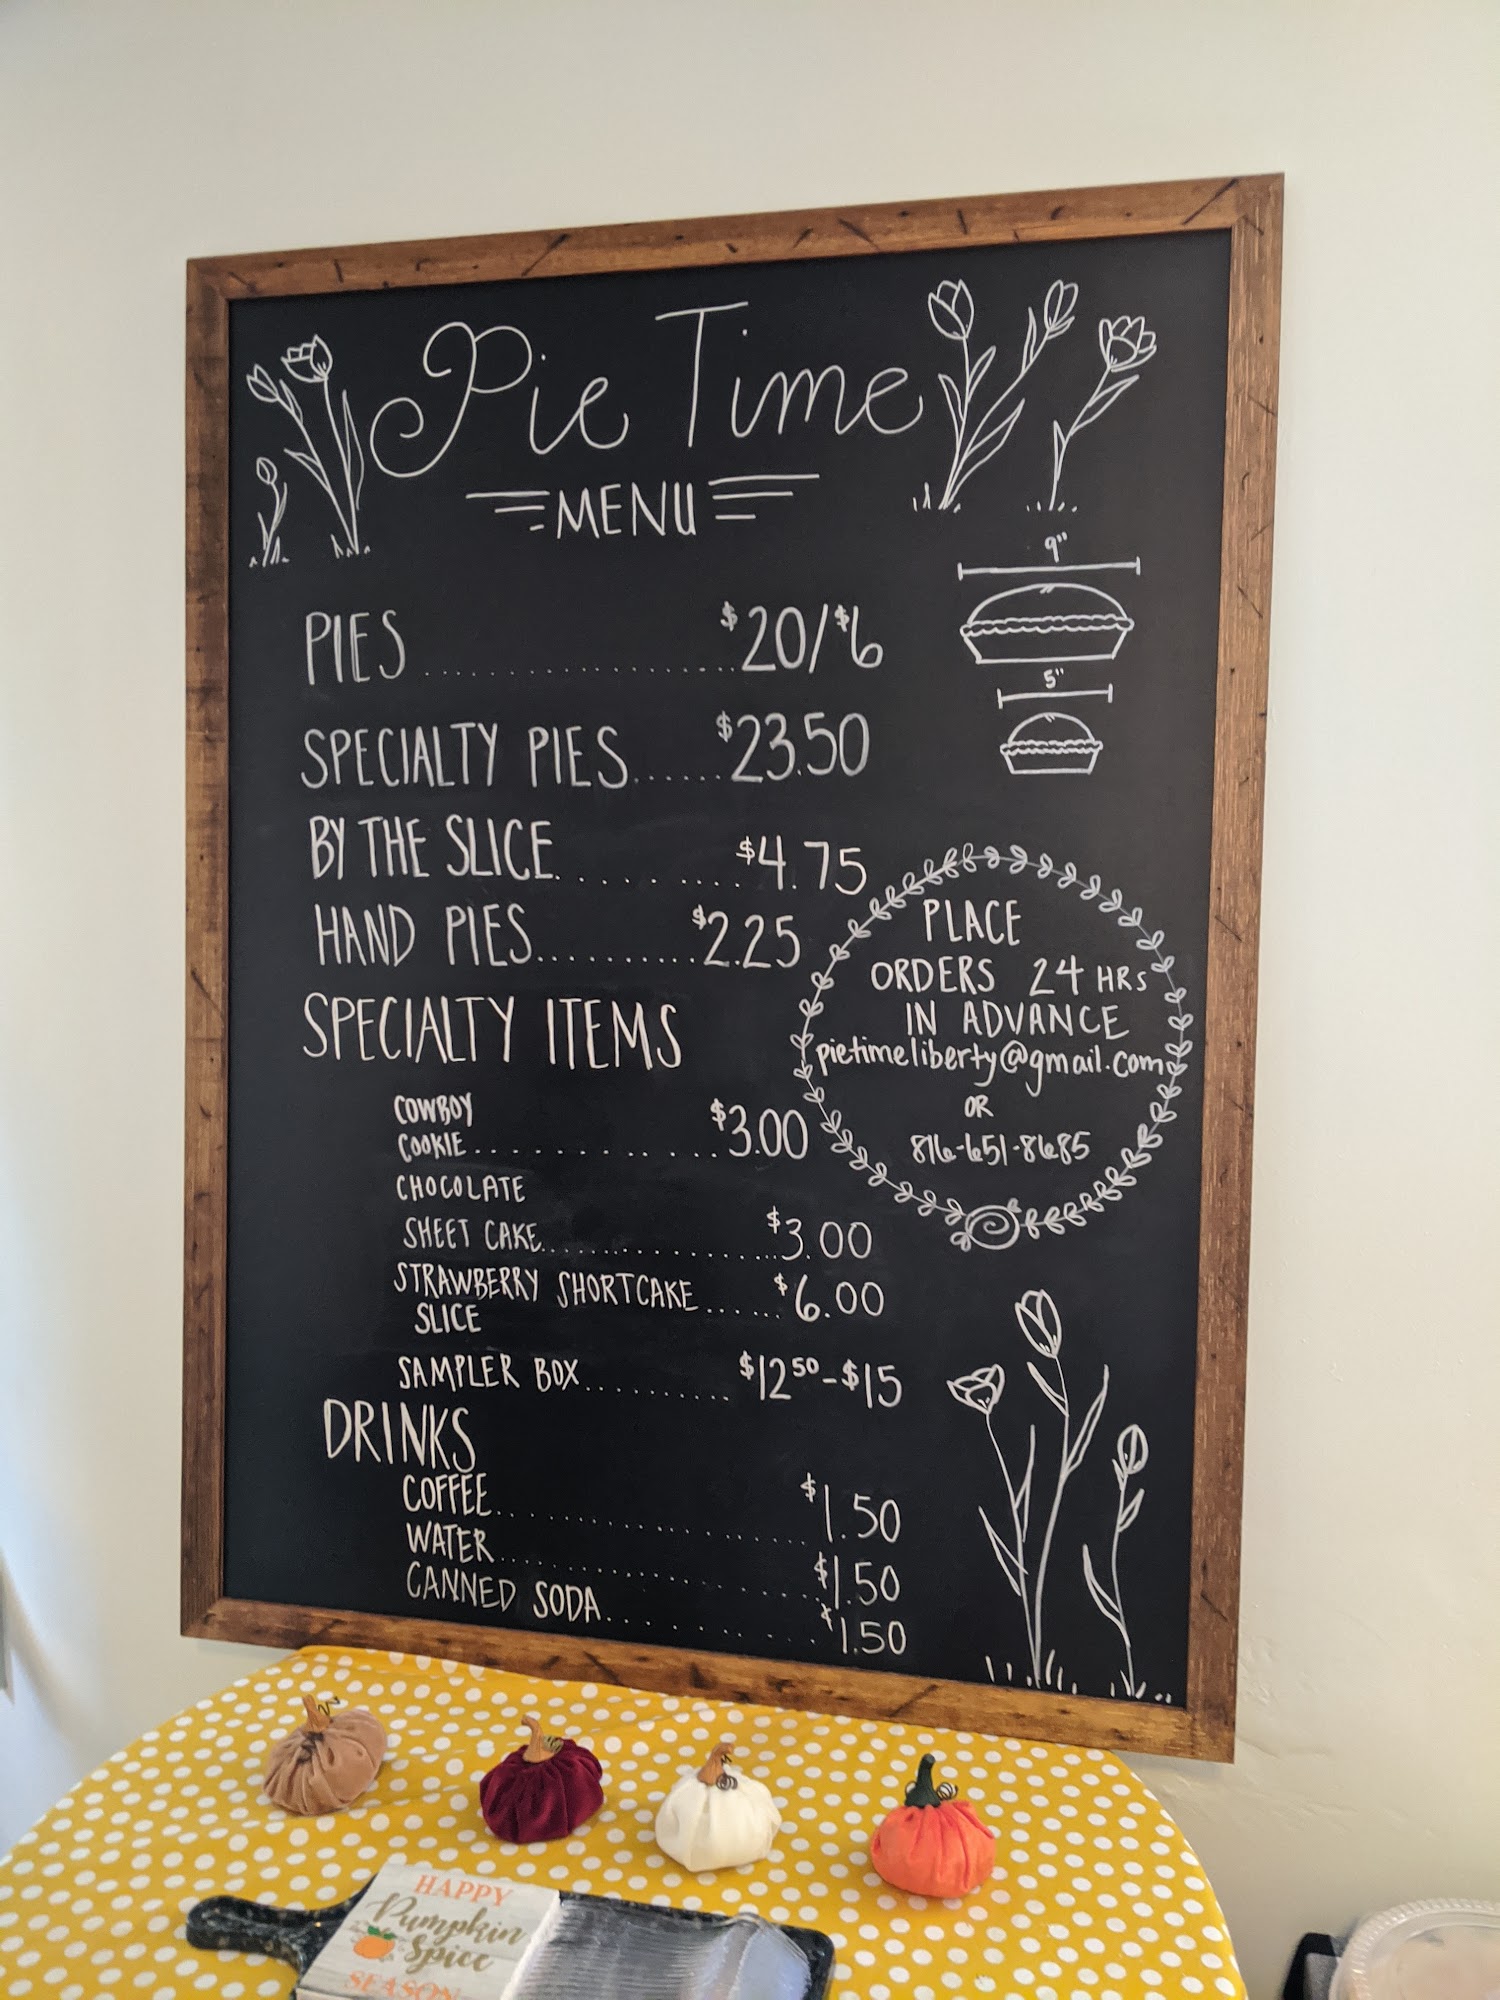 Pie Time
MENU
9"
PIES.................$20/$6
5"
SPECIALTY PIES......$23.50
BY THE SLICE..........$4.75
HAND PIES..........$2.25
PLACE
ORDERS 24 HRS
IN ADVANCE
pietimeliberty@gmail.com
OR
816-651-8685
SPECIALTY ITEMS
COWBOY
COOKIE.............$3.00
CHOCOLATE
SHEET CAKE..................$3.00
STRAWBERRY SHORTCAKE......$6.00
SLICE
SAMPLER BOX..........$12.50-$15
DRINKS
COFFEE....................$1.50
WATER....................$1.50
CANNED SODA...........$1.50
HAPPY
Pumpkin
Spice
SEASON